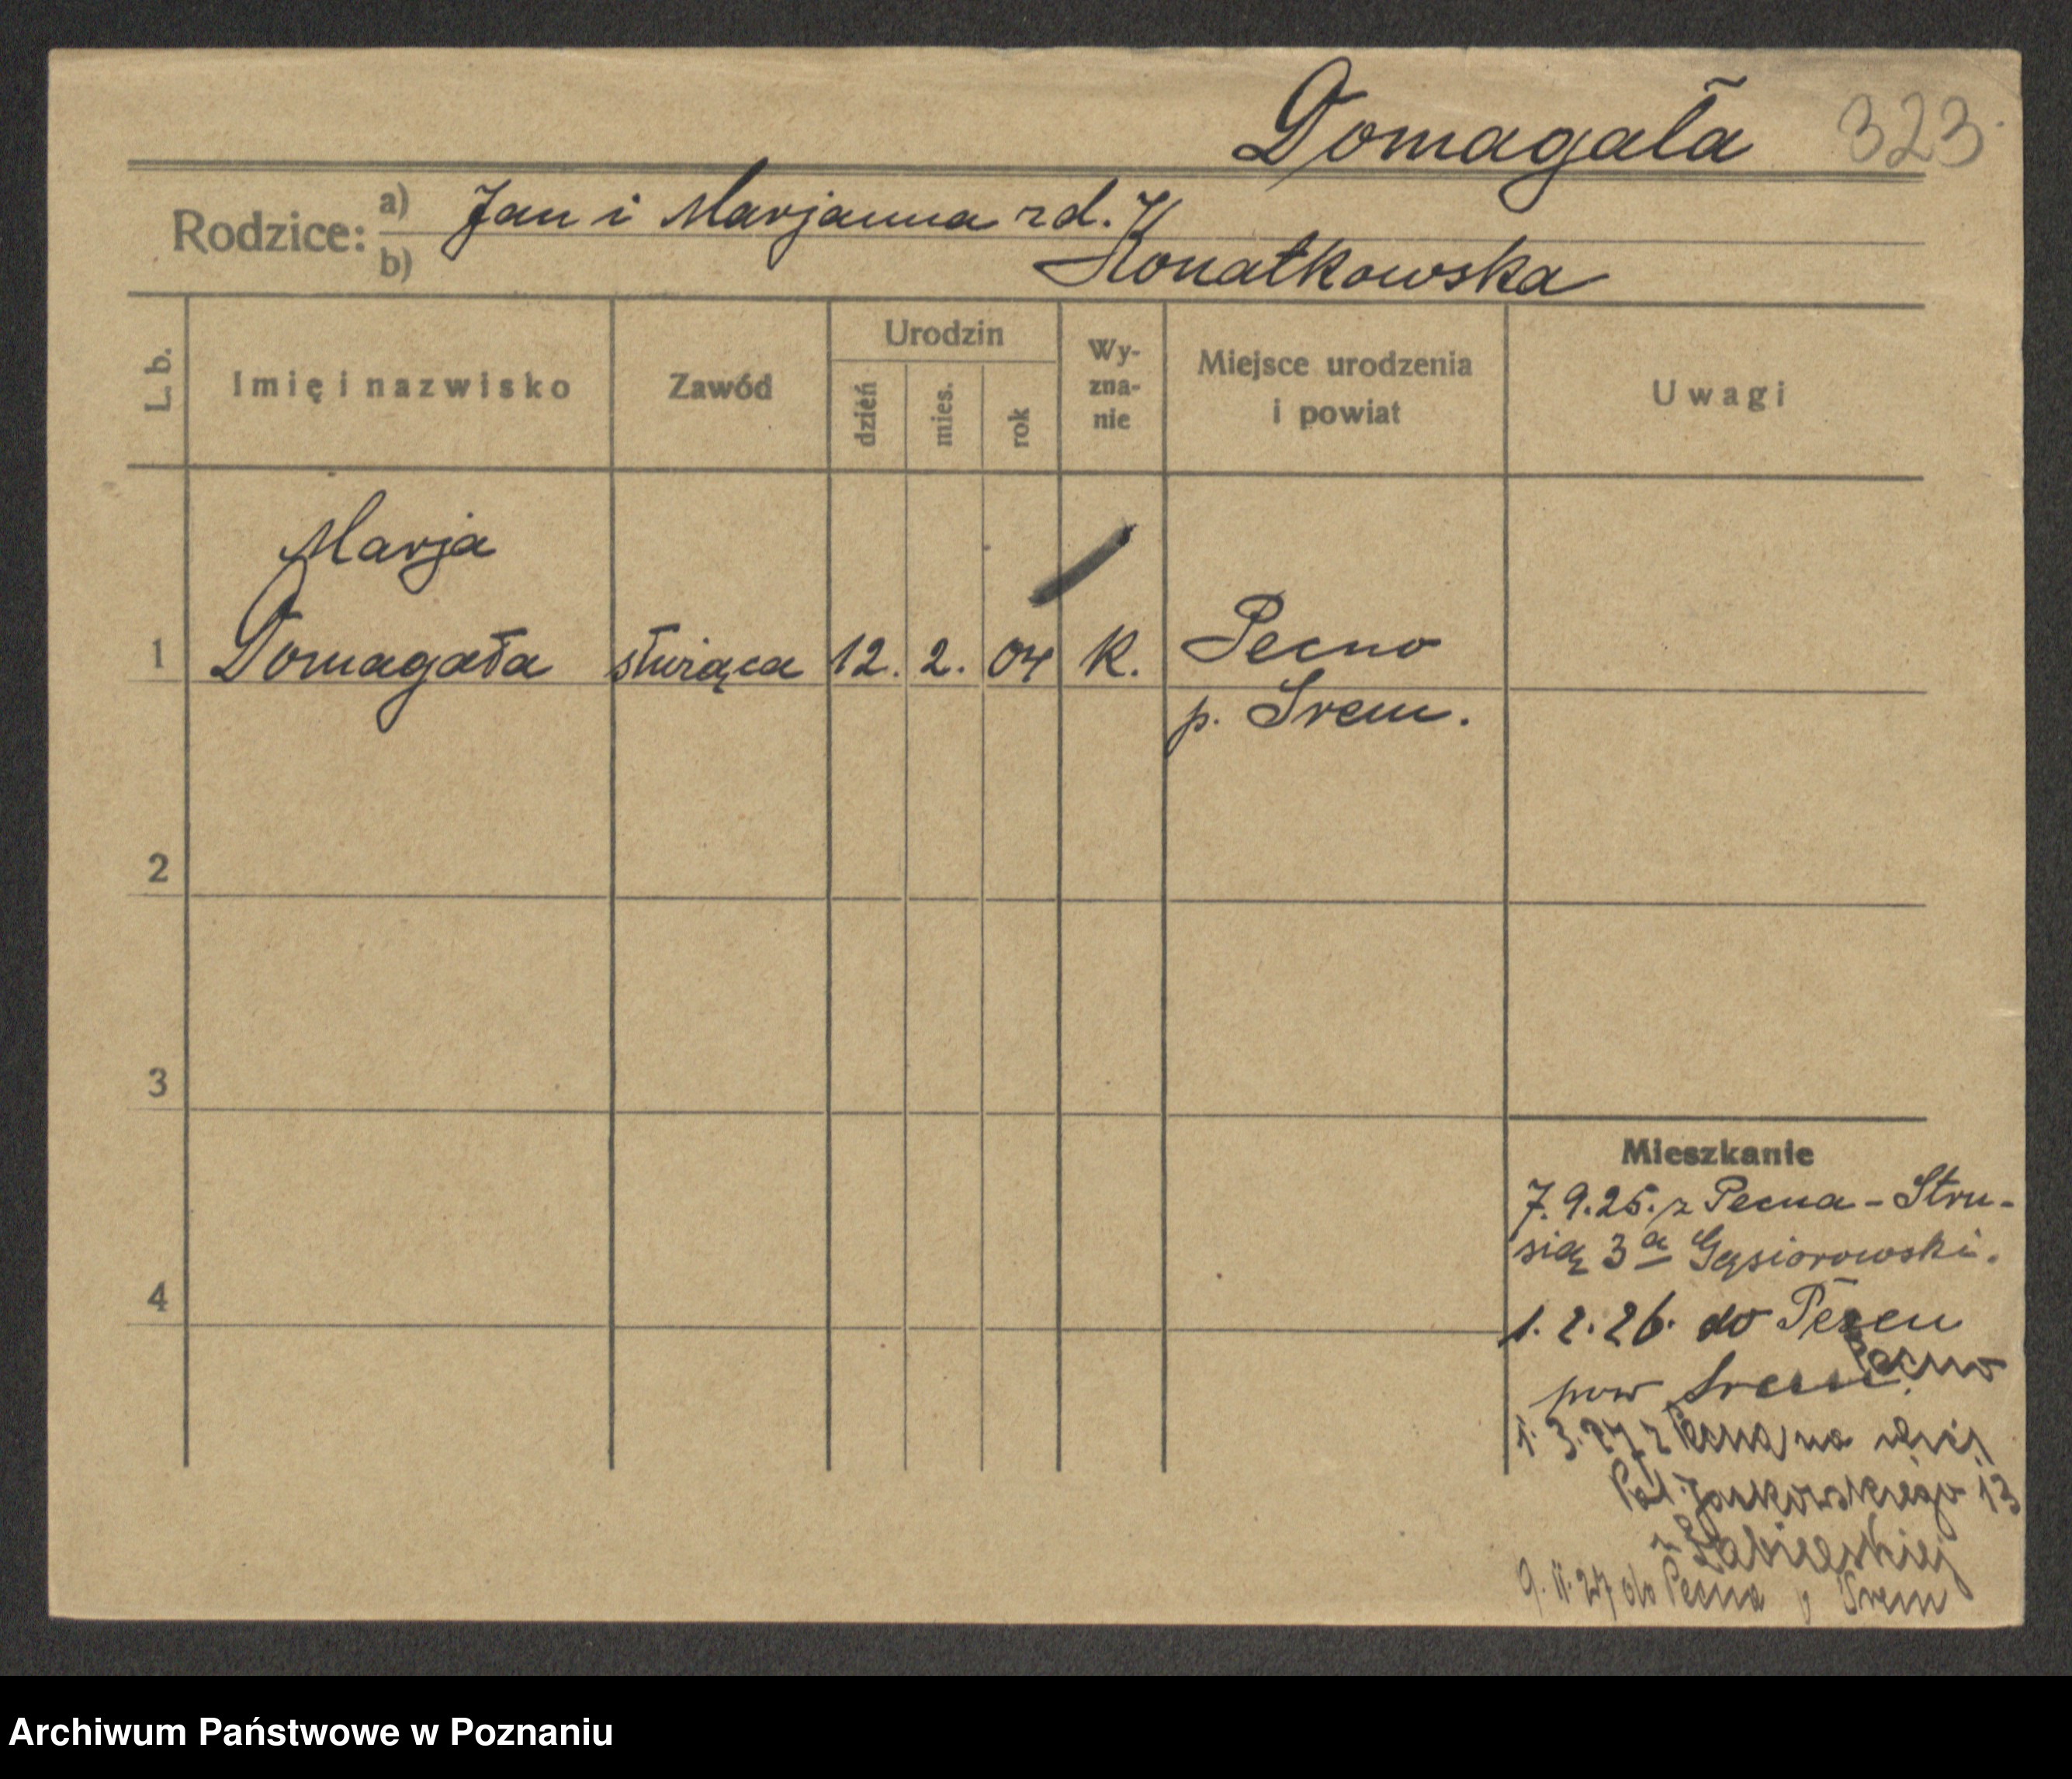 Domagała 323.
Rodzice: a) Jan i Marjanna rd.
b) Konatkowska
L. b.
Imię i nazwisko
Zawód
Urodzin
dzień
mies.
rok
Wy-
zna-
nie
Miejsce urodzenia
i powiat
Uwagi
Marja
1 Domagała służąca 12. 2. 04 K. Pecno
p. Śrem.
2
3
4
Mieszkanie
7.9.25. z Pecna - Stru-
sią 3a Gąsiorowski.
1.2.26. do
Pecno
pow Śrem
1.3.27 z Pecna na
Jackowskiego 13
9.11.27 do Pecna p Śrem
Archiwum Państwowe w Poznaniu